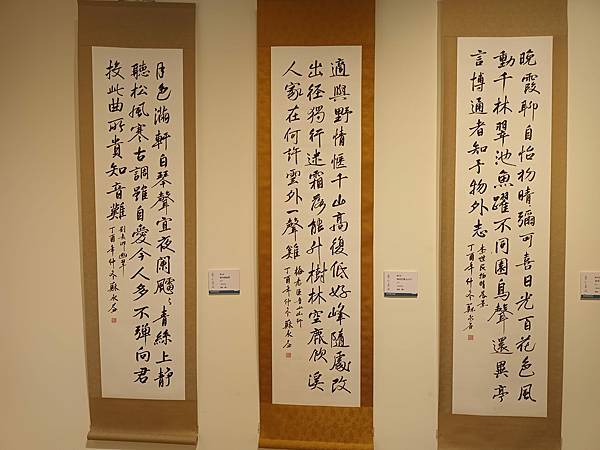 晚霞聊自怡初晴彌可喜日光百花色風
動千林翠池魚躍不同園鳥聲還異寄
言博通者知予物外志
李世民初晴落景
丁酉年仲冬蘇永
適與野情愜千山高復低好峰隨處改
幽徑獨行迷霜落熊升樹林空鹿飲溪
人家在何許雲外一聲雞
梅堯臣魯山山行
丁酉年仲冬蘇永
月色滿軒白琴聲宜夜闌飀飀青絲上靜
聽松風寒古調雖自愛今人多不彈向君
投此曲所貴知音難
劉長卿幽琴
丁酉年仲冬蘇永